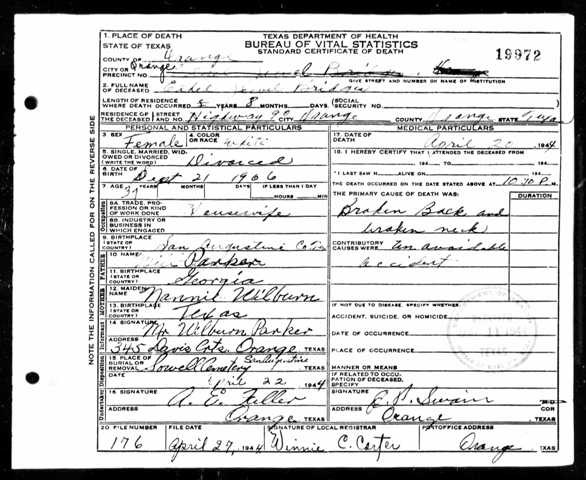 1. PLACE OF DEATH
STATE OF TEXAS
COUNTY OF Orange
CITY OR PRECINCT NO. Orange
TEXAS DEPARTMENT OF HEALTH
BUREAU OF VITAL STATISTICS
STANDARD CERTIFICATE OF DEATH
19972
GIVE STREET AND NUMBER OR NAME OF INSTITUTION
2. FULL NAME OF DECEASED Ethel
LENGTH OF RESIDENCE WHERE DEATH OCCURRED 8 MONTHS DAYS (SOCIAL SECURITY NO.)
RESIDENCE OF THE DECEASED STREET AND NO. Highway 90 Orange COUNTY Orange STATE Texas
PERSONAL AND STATISTICAL PARTICULARS
3. SEX Female
4. COLOR OR RACE White
5. SINGLE, MARRIED, WIDOWED OR DIVORCED (WRITE) Divorced
6. DATE OF BIRTH Sept 21 1906
7. AGE 37 YEARS MONTHS DAYS IF LESS THAN 1 DAY HOURS MIN.
8A. TRADE, PROFESSION OR KIND OF WORK DONE Housewife
8B. INDUSTRY OR BUSINESS IN WHICH ENGAGED
9. BIRTHPLACE (STATE OR COUNTRY) San Augustine
10. NAME Parker
11. BIRTHPLACE (STATE OR COUNTRY) Georgia
12. MAIDEN NAME Nannie Wilburn
13. BIRTHPLACE (STATE OR COUNTRY) Texas
14. SIGNATURE Mr Wilburn Parker
ADDRESS 345 Davis Crts. Orange TEXAS
15. PLACE OF BURIAL OR REMOVAL Powell Cemetery San Augustine TEXAS
DATE April 22 1944
16. SIGNATURE A. E. Feller
ADDRESS Orange TEXAS
MEDICAL PARTICULARS
17. DATE OF DEATH April 20 1944
18. I HEREBY CERTIFY THAT I ATTENDED THE DECEASED FROM
194 TO 194
I LAST SAW H ALIVE ON 194
THE DEATH OCCURRED ON THE DATE STATED ABOVE AT 10:30 P.M.
THE PRIMARY CAUSE OF DEATH WAS: DURATION
Broken Back and
broken neck
CONTRIBUTORY CAUSES WERE
accident
IF NOT DUE TO DISEASE, SPECIFY WHETHER:
ACCIDENT, SUICIDE, OR HOMICIDE
DATE OF OCCURRENCE
PLACE OF OCCURRENCE
MANNER OR MEANS
IF RELATED TO OCCUPATION OF DECEASED, SPECIFY
SIGNATURE M.D.
ADDRESS Orange TEXAS
20. FILE NUMBER 176
FILE DATE April 27, 1944
SIGNATURE OF LOCAL REGISTRAR Winnie C. Carter
POSTOFFICE ADDRESS Orange TEXAS
NOTE THE INFORMATION CALLED FOR ON THE REVERSE SIDE
Occupation
FATHER
MOTHER
Informant
Disposition
Undertaker